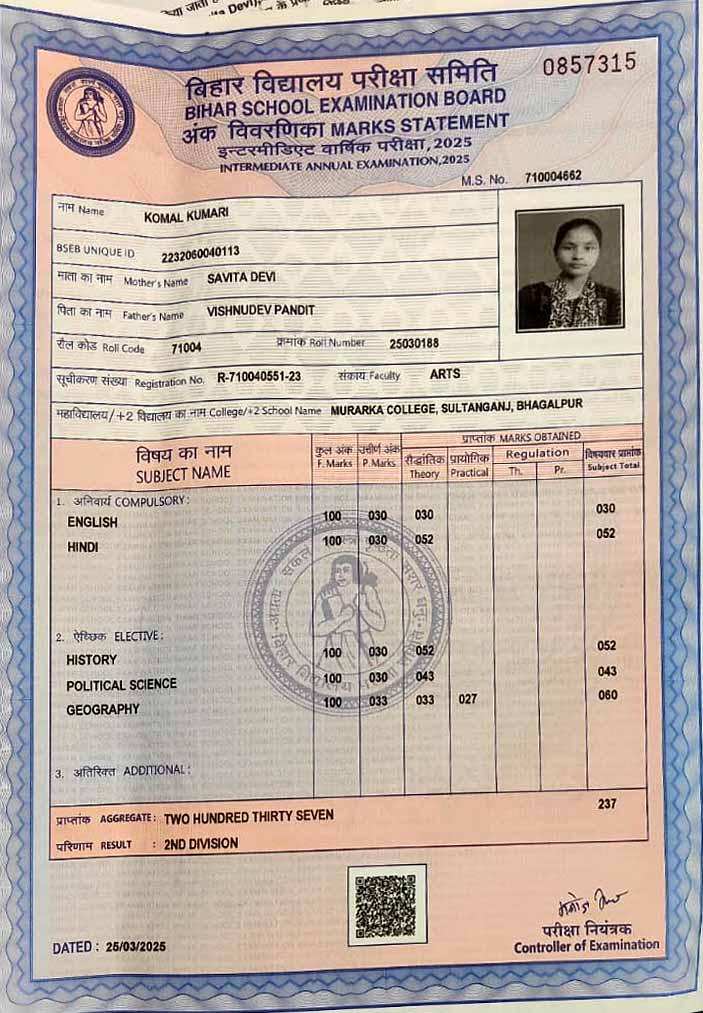 0857315
बिहार विद्यालय परीक्षा समिति
BIHAR SCHOOL EXAMINATION BOARD
अंक विवरणिका MARKS STATEMENT
इन्टरमीडिएट वार्षिक परीक्षा, 2025
INTERMEDIATE ANNUAL EXAMINATION, 2025
M.S. No. 710004662
नाम Name KOMAL KUMARI
BSEB UNIQUE ID 2232060040113
माता का नाम Mother's Name SAVITA DEVI
पिता का नाम Father's Name VISHNUDEV PANDIT
रौल कोड Roll Code 71004 क्रमांक Roll Number 25030188
सूचीकरण संख्या Registration No. R-710040551-23 संकाय Faculty ARTS
महाविद्यालय/+2 विद्यालय का नाम College/+2 School Name MURARKA COLLEGE, SULTANGANJ, BHAGALPUR
विषय का नाम SUBJECT NAME कुल अंक F. Marks उत्तीर्ण अंक P. Marks प्राप्तांक MARKS OBTAINED
सैद्धांतिक Theory प्रायोगिक Practical Regulation Th. Pr. विषयवार प्राप्तांक Subject Total
1. अनिवार्य COMPULSORY:
ENGLISH 100 030 030 030
HINDI 100 030 052 052
2. ऐच्छिक ELECTIVE:
HISTORY 100 030 052 052
POLITICAL SCIENCE 100 030 043 043
GEOGRAPHY 100 033 033 027 060
3. अतिरिक्त ADDITIONAL:
प्राप्तांक AGGREGATE: TWO HUNDRED THIRTY SEVEN 237
परिणाम RESULT : 2ND DIVISION
DATED : 25/03/2025
परीक्षा नियंत्रक
Controller of Examination